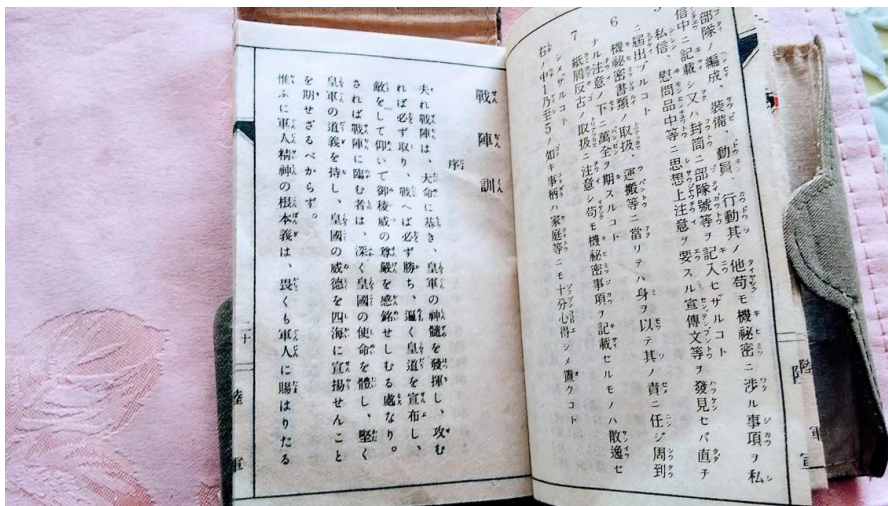 部隊ノ編成、裝備、動員、行動其ノ他苟モ機祕密ニ涉ル事項ヲ私
信中ニ記載シ又ハ封筒ニ部隊號等ヲ記入セザルコト
私信、慰問品中等ニ思想上注意ヲ要スル宣傳文等ヲ發見セバ直チ
ニ屆出ヅルコト
6 機祕密書類ノ取扱、運搬等ニ當リテハ身ヲ以テ其ノ責ニ任ジ周到
ナル注意ノ下ニ萬全ヲ期スルコト
7 紙屑反古ノ取扱ニ注意シ苟モ機祕密事項ヲ記載セルモノハ散逸セ
シメザルコト
右ノ中1乃至5ノ如キ事柄ハ家庭等ニモ十分心得シメ置クコト
陸軍
戰陣訓
序
夫れ戰陣は、大命に基き、皇軍の神髓を發揮し、攻む
れば必ず取り、戰へば必ず勝ち、遍く皇道を宣布し、
敵をして仰いで御稜威の尊嚴を感銘せしむる處なり。
されば戰陣に臨む者は、深く皇國の使命を體し、堅く
皇軍の道義を持し、皇國の威德を四海に宣揚せんこと
を期せざるべからず。
惟ふに軍人精神の根本義は、畏くも軍人に賜はりたる
二十
陸軍